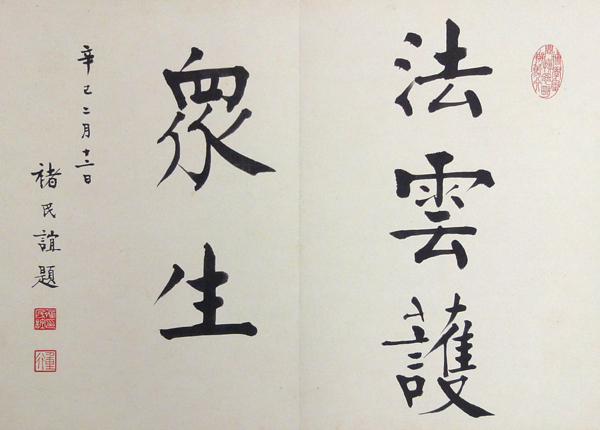 法雲護
眾生
辛巳二月十二日
褚民誼題